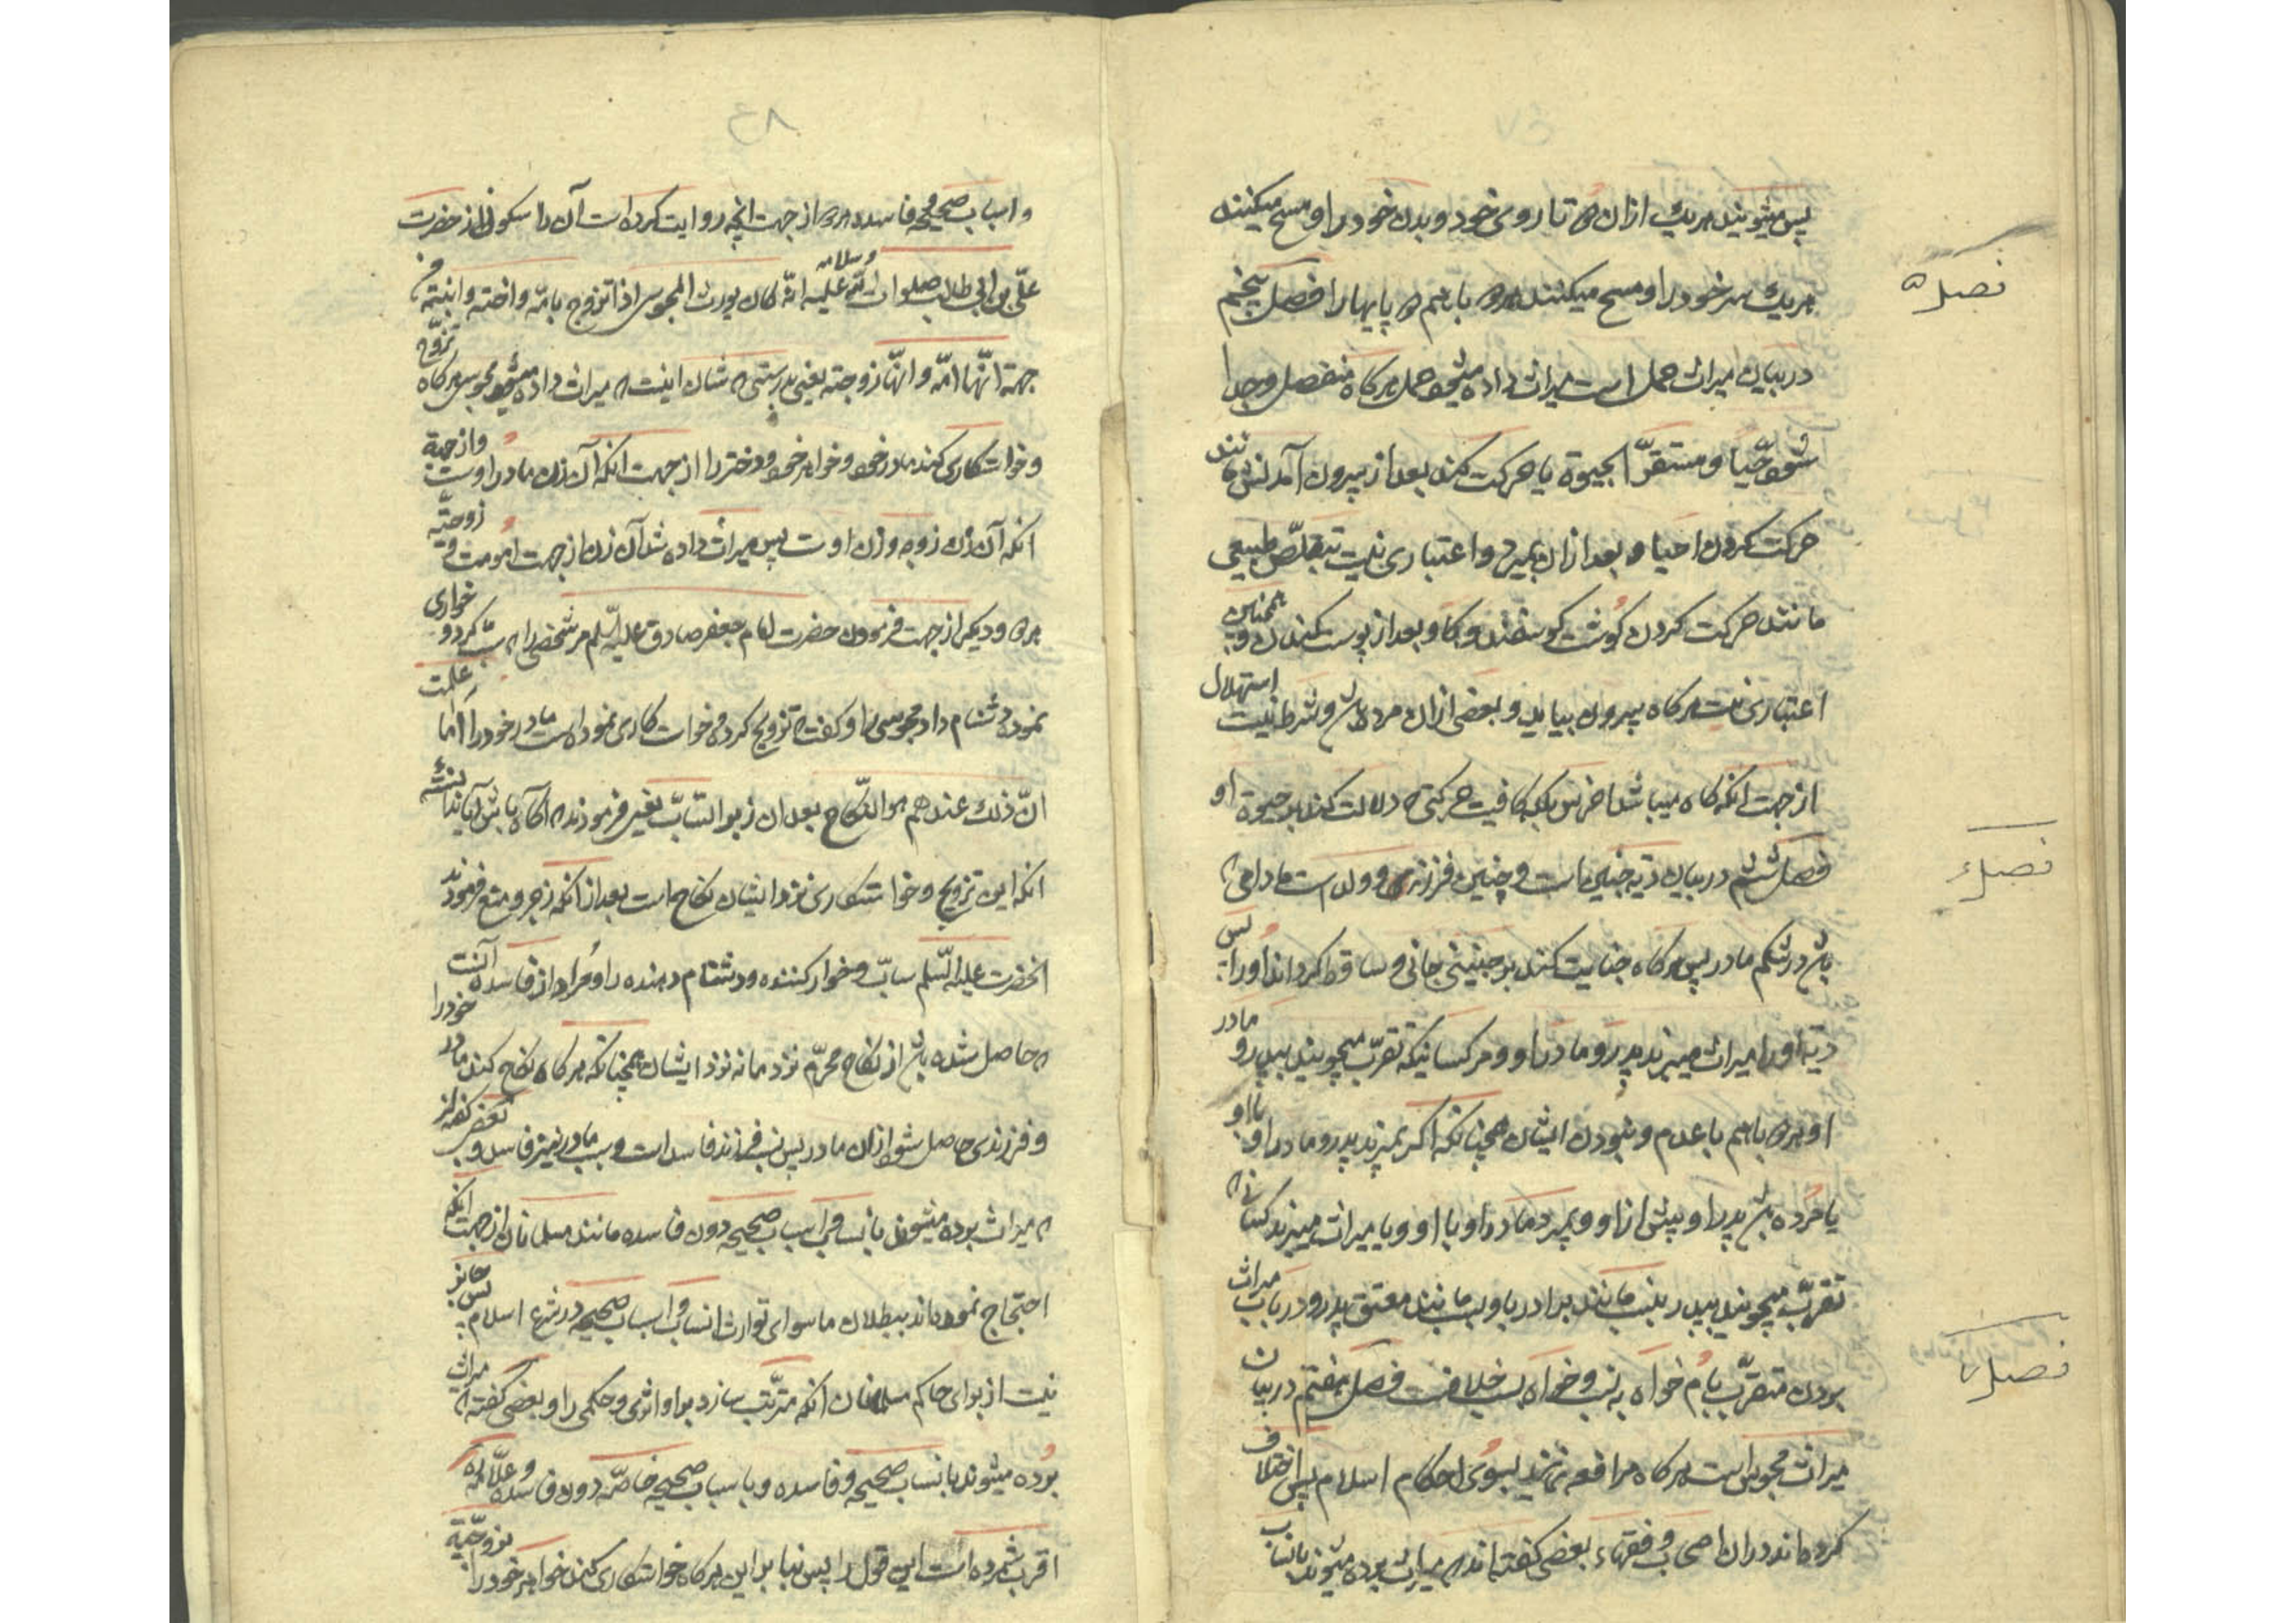 ۴۷
پس میشویند هریک ازان هر دو تا روی خود و بدن خود را و مسح میکنند
هریک سر خود را و مسح میکنند هر دو باهم هر دو پایها را فصل پنجم
فصل ۵
در بیان میراث حمل است میراث داده میشود حمل هرکاه منفصل و جدا
شود حیّا و مستقرّ الحیوة یا حرکت کند بعد از بیرون آمدنش مانند
حرکت کردن احیا و بعد ازان بمیرد و اعتباری نیست بتقلّص طبیعی
مانند حرکت کردن کوشت کوسفند و کاو بعد از پوست کندن و همچنین
اعتباری نیست هرکاه بیرون بیاید و بعضی ازان مرده باش و شرط نیست استهلال
از جهت انکه کاه میباشد اخرس بلکه کافیست حرکتی که دلالت کند بر حیوة او
فصل ششم در بیان دیه جنین است و جنین فرزندی و ولد است مادامی که
فصل ۶
باش در شکم مادر پس هرکاه جنایت کند بر جنینی جانی و ساقط کرداند اورا پس
دیه اورا میراث میبرند پدر و مادر او و هر کسانیکه تقرّب میجویند بپدر و مادر
او هر دو باهم با عدم و نبودن ایشان همچنانکه اکر بمیرند پدر و مادر او با او
یا مرده باش پدر او پیش از او و بمیرد مادر او با او و یا میراث میبرند کسانی که
تقرّب میجویند بپدر بنسب مانند برادر یا بسبب مانند معتق پدر و در باب میراث
بودن متقرّب بام خواه به نسب و خواه بسبب خلافست فصل هفتم در بیان
فصل ۷
میراث مجوس است هرکاه مرافعه نمایند بسوی احکام اسلام پس اختلاف
کرده اند دران اصحاب و فقهاء بعضی کفته اند که میراث برده میشوند بانساب
۴۸
و اسباب صحیحه و فاسده هر دو از جهت انچه روایت کرده است آن را سکونی از حضرت
علیّ بن ابی طالب صلوات اللّه علیه و سلامه انّه کان یورث المجوس اذا تزوج بامّه و اخته و ابنته من
جهة انّها امّه و انّها زوجته یعنی بدرستی که شان اینست که میراث داده میشود مجوس هرکاه تزوّج
و خواستکاری کند مادر خود و خواهر خود و دختر را از جهت انکه آن زن مادر اوست و از جهة
انکه آن زن زوجه و زن اوست پس میراث داده شد آن زن از جهت امومت و زوجیّه
هر دو و دیکر از جهت فرمودن حضرت امام جعفر صادق علیه السّلم مر شخصی را که سبّ کرد و خواری
نمود و دشنام داد مجوسی را و کفت که تزویج کرده و خواستکاری نموده است مادر خود را اما علمت
انّ ذلک عندهم هو النکاح بعد ان زبر السّابّ یعنی فرمودند که آکاه باش آیا ندانسته‌ء
انکه این تزویج و خواستکاری نزد ایشان نکاح است بعد از انکه زجر و منع فرمودند
انحضرت علیه السّلم سابّ و خوار کننده و دشنام دهنده را و مراد از فاسده آنست
که حاصل شده باش از نکاح محرّم نزد ما نه نزد ایشان همچنانکه هرکاه نکاح کند مادر خود را
و فرزندی حاصل شود ازان مادر پس نسب فرزند فاسد است و سبب مادر نیز فاسد و بعضی کفته اند
که میراث برده میشوند بانساب و اسباب صحیحه دون فاسده مانند مسلمانان از جهت انکه
احتجاج نموده اند ببطلان ما سوای توارث انساب و اسباب صحیحه در شرع اسلام پس جائز
نیست از برای حاکم مسلمانان انکه مترتّب سازد بر او اثری و حکمی را و بعضی کفته که میراث
برده میشوند بانساب صحیحه و فاسده و باسباب صحیحه خاصّه دون فاسده و علّامه
اقرب شمرده است این قول را پس بنا براین هرکاه خواستکاری کند خواهر خود را بزوجیّة